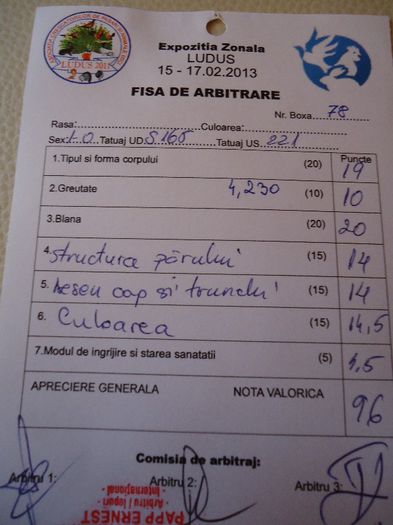 LUDUS 2011
Expozitia Zonala
LUDUS
15 - 17.02.2013
FISA DE ARBITRARE
Nr. Boxa 78
Rasa: Culoarea:
Sex: 1.0 Tatuaj UD S165 Tatuaj US 221
Puncte
1.Tipul si forma corpului (20) 19
2.Greutate 4,230 (10) 10
3.Blana (20) 20
4. structura părului (15) 14
5. Desen cap si trunchi (15) 14
6. Culoarea (15) 14,5
7.Modul de ingrijire si starea sanatatii (5) 4,5
APRECIERE GENERALA NOTA VALORICA 96
Comisia de arbitraj:
Arbitru 1: Arbitru 2: Arbitru 3:
PAPP ERNEST
- Arbitru / Iepuri -
- International -